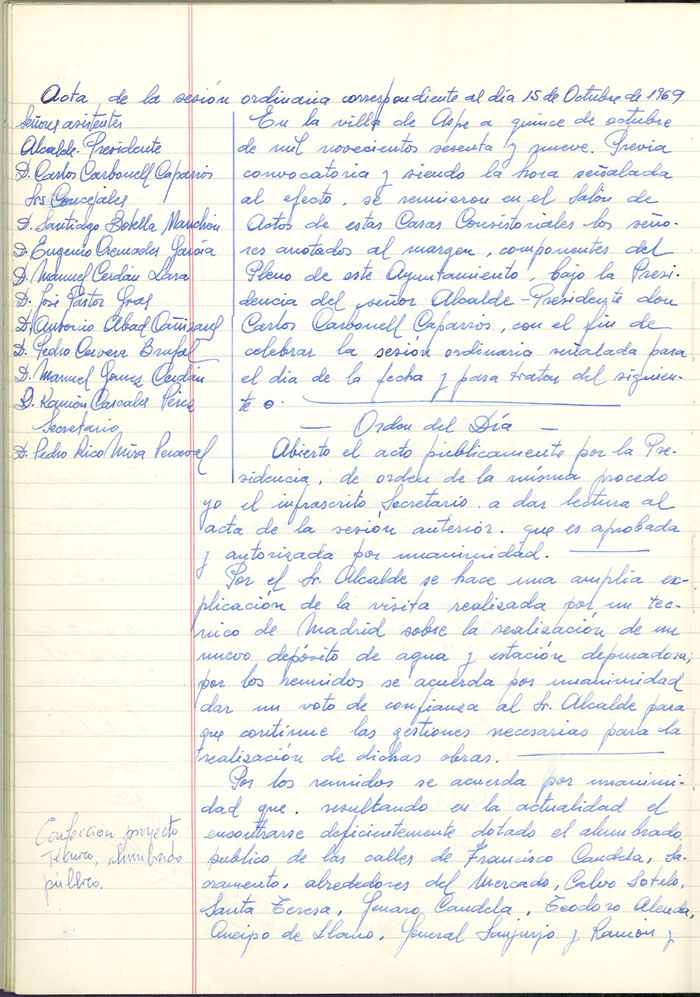 Acta de la sesión ordinaria correspondiente al día 15 de Octubre de 1969
Señores asistentes
Alcalde-Presidente
D. Carlos Carbonell Caparrós
Srs Concejales
D. Santiago Botella Manchón
D. Eugenio Cremades García
D. Manuel Cerdán Lara
D. José Pastor Gras
D. Antonio Abad Cañizares
D. Pedro Cervera Brufal
D. Manuel Gomez Cerdán
D. Ramón Cascales Pérez
Secretario
D. Pedro Rico Mira Perceval
En la villa de Aspe a quince de octubre
de mil novecientos sesenta y nueve. Previa
convocatoria y siendo la hora señalada
al efecto, se reunieron en el Salón de
Actos de estas Casas Consistoriales los seño-
res anotados al margen, componentes del
Pleno de este Ayuntamiento, bajo la Presi-
dencia del señor Alcalde-Presidente don
Carlos Carbonell Caparrós, con el fin de
celebrar la sesión ordinaria señalada para
el dia de la fecha y para tratar del siguien-
te
— Orden del Día —
Abierto el acto públicamente por la Pre-
sidencia, de orden de la misma procedo
yo el infrascrito Secretario a dar lectura al
acta de la sesión anterior. que es aprobada
y autorizada por unanimidad.
Por el Sr. Alcalde se hace una amplia ex-
plicación de la visita realizada por un tec-
nico de Madrid sobre la realización de un
nuevo depósito de agua y estación depuradora;
por los reunidos se acuerda por unanimidad
dar un voto de confianza al Sr. Alcalde para
que continue las gestiones necesarias para la
realización de dichas obras.
Por los reunidos se acuerda por unanimi-
dad que, resultando en la actualidad el
encontrarse deficientemente dotado el alumbrado
publico de las calles de Francisco Candela, Sa-
cramento, alrededores del Mercado, Calvo Sotelo,
Santa Teresa, Genaro Candela, Teodoro Alenda,
Queipo de Llano, General Sanjurjo y Ramón y
Confección proyecto
técnico, alumbrado
público.